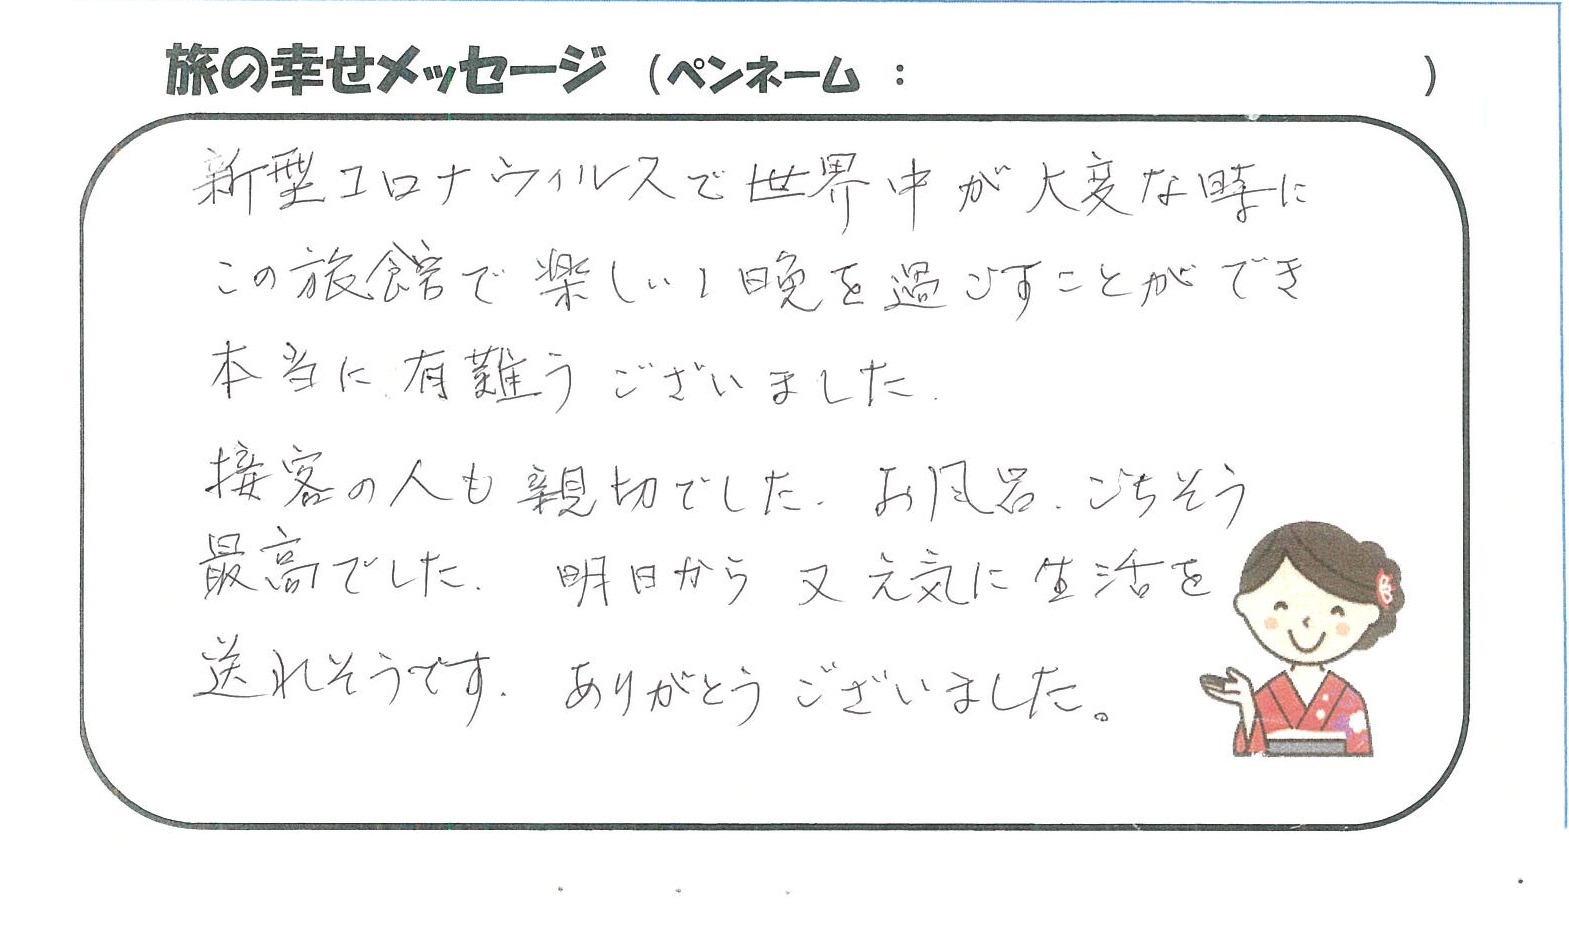 旅の幸せメッセージ （ペンネーム ： ）
新型コロナウィルスで世界中が大変な時に
この旅館で楽しい1晩を過ごすことができ
本当に有難うございました.
接客の人も親切でした. お風呂.ごちそう
最高でした. 明日から又元気に生活を
送れそうです. ありがとうございました。